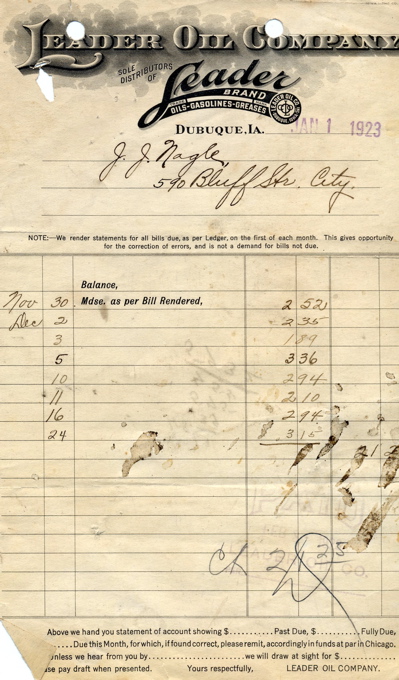 LEADER OIL COMPANY
SOLE DISTRIBUTORS OF
Leader
BRAND
OILS-GASOLINES-GREASES
DUBUQUE, IA. JAN 1 1923
J. J. Nagle,
590 Bluff Str. City.
NOTE:—We render statements for all bills due, as per Ledger, on the first of each month. This gives opportunity
for the correction of errors, and is not a demand for bills not due.
Balance,
Nov 30 Mdse. as per Bill Rendered, 2 52
Dec 2 2 35
3 1 89
5 3 36
10 2 94
11 2 10
16 2 94
24 3 15
21 2
Ck 2
Above we hand you statement of account showing $.......... Past Due, $.......... Fully Due,
.....Due This Month, for which, if found correct, please remit, accordingly in funds at par in Chicago.
nless we hear from you by.................. we will draw at sight for $..............
se pay draft when presented. Yours respectfully, LEADER OIL COMPANY.